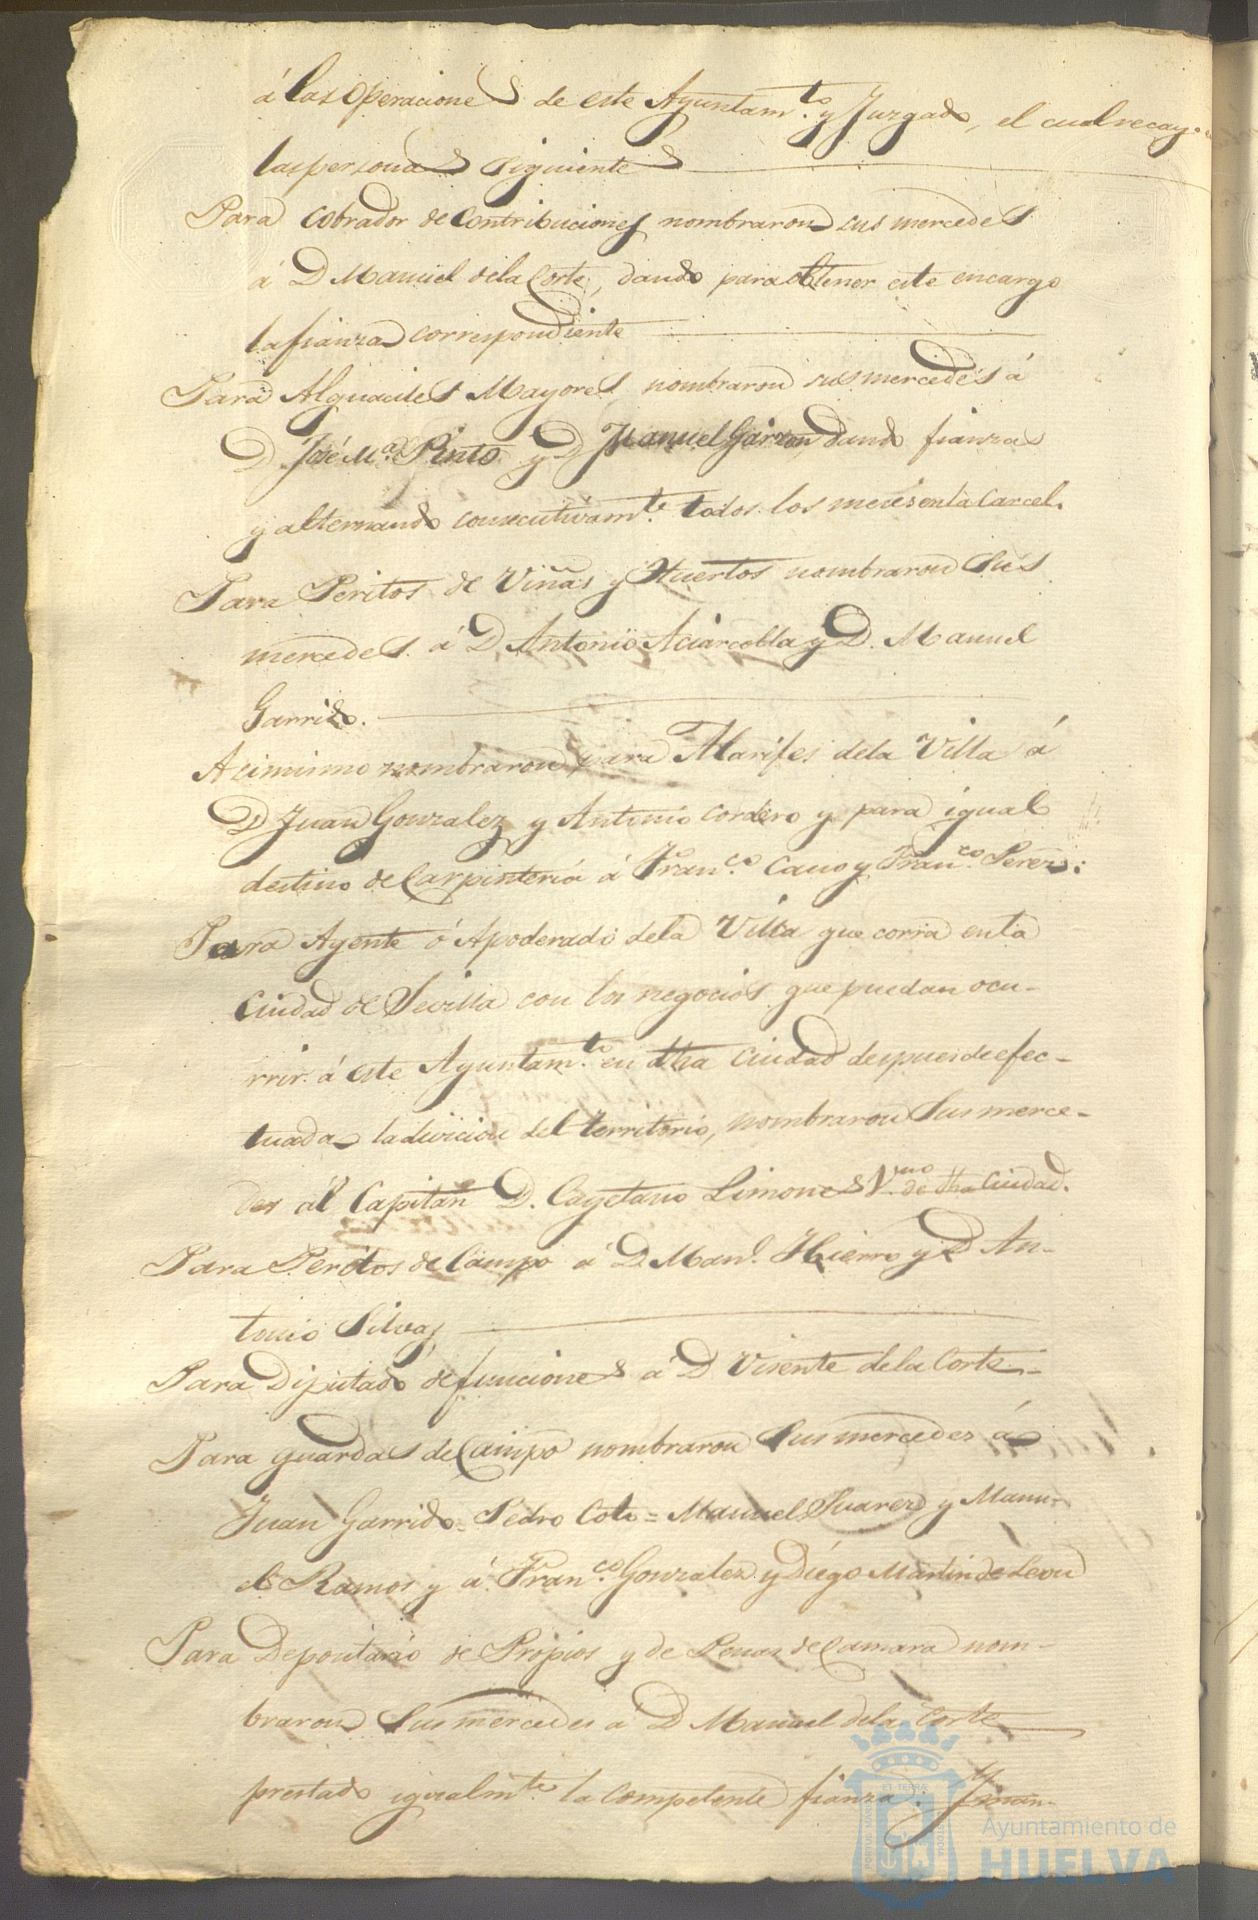 á las Operaciones de este Ayuntam.to y Juzgado, el cual recayo
las personas siguientes
Para Cobrador de Contribuciones nombraron sus mercedes
á D Manuel dela Corte, dando para obtener este encargo
la fianza correspondiente
Para Alguaciles Mayores nombraron sus mercedes á
D José M.a Pinto y D Manuel Garzon, dando fianza
y alternando consecutivam.te todos los meses en la Carcel.
Para Peritos de Viñas y Huertos nombraron Sus
mercedes. á D. Antonio y D. Manuel
Garrido.
Asimismo nombraron para Alarifes dela Villa á
D Juan Gonzalez y Antonio Cordero y para igual
destino de Carpinteria á Fran.co Cano y Fran.co Perez:
Para Agente ó Apoderado dela Villa que corra en la
Ciudad de Sevilla con los negocios que puedan ocu-
rrir á este Ayuntam.to en dha Ciudad despues de efec-
tuada la divicion del territorio, nombraron Sus merce-
des ál Capitan D. Cayetano Limones V.no de dha Ciudad.
Para Peritos de Campo á D. Man.l Hierro y D An-
tonio Silva,
Para Diputado de funciones á D Visente dela Corte
Para guardas de Campo nombraron Sus mercedes á
Juan Garrido = Pedro Coto = Manuel Suarez y Manu-
el Ramos y á Fran.co Gonzalez y Diego Martin de Leon
Para Depositario de Propios y de Penas de Camara nom-
braron Sus mercedes á D Manuel dela Corte
prestado igualm.te la competente fianza.
ET TERRÆ
PORTUS MARIS
CUSTODIA
Ayuntamiento de
HUELVA